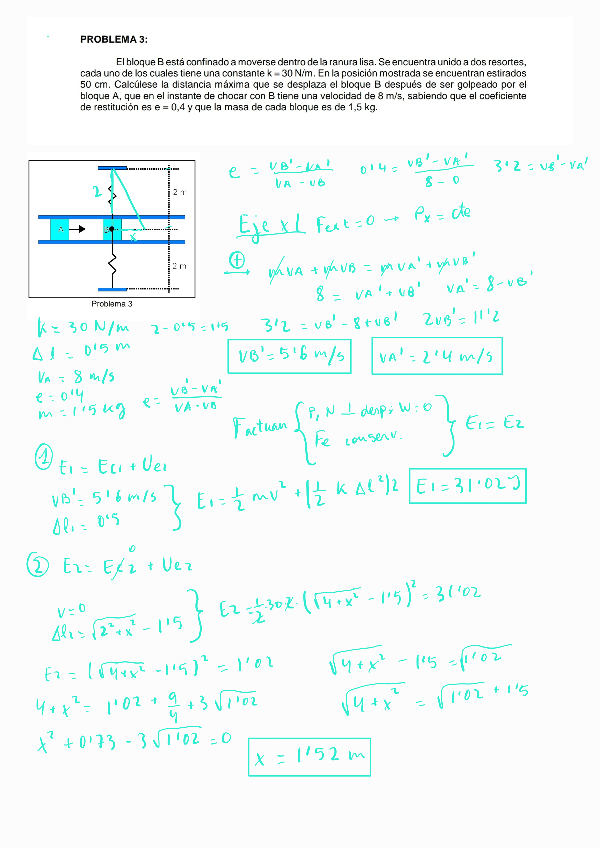 PROBLEMA 3:
El bloque B está confinado a moverse dentro de la ranura lisa. Se encuentra unido a dos resortes,
cada uno de los cuales tiene una constante k = 30 N/m. En la posición mostrada se encuentran estirados
50 cm. Calcúlese la distancia máxima que se desplaza el bloque B después de ser golpeado por el
bloque A, que en el instante de chocar con B tiene una velocidad de 8 m/s, sabiendo que el coeficiente
de restitución es e = 0,4 y que la masa de cada bloque es de 1,5 kg.
2 m
2
A
x
2 m
Problema 3
e = VB'-VA' / VA-VB   0'4 = VB'-VA' / 8-0   3'2 = VB'-VA'
Eje x | Fext = 0 → Px = cte
+ mVA + mVB = mVA' + mVB'
8 = VA' + VB'   VA' = 8-VB'
K = 30 N/m   2-0'5 = 1'5   3'2 = VB'-8+VB'   2VB' = 11'2
Δl = 0'5 m
VB' = 5'6 m/s   VA' = 2'4 m/s
VA = 8 m/s
e = 0'4
m = 1'5 kg   e = VB'-VA' / VA-VB
Factuan { P, N ⊥ desp; W = 0
Fe conserv. } E1 = E2
1 E1 = Ec1 + Ue1
VB' = 5'6 m/s
Δl1 = 0'5 } E1 = 1/2 mv² + (1/2 K Δl²)2   E1 = 31'02 J
2 E2 = Ec2 0 + Ue2
v = 0
Δl2 = √2²+x² - 1'5 } E2 = 1/2 · 30 · 2 · (√4+x² - 1'5)² = 31'02
E2 = (√4+x² - 1'5)² = 1'02   √4+x² - 1'5 = √1'02
4+x² = 1'02 + 9/4 + 3√1'02   √4+x² = √1'02 + 1'5
x² + 0'73 - 3√1'02 = 0
x = 1'52 m